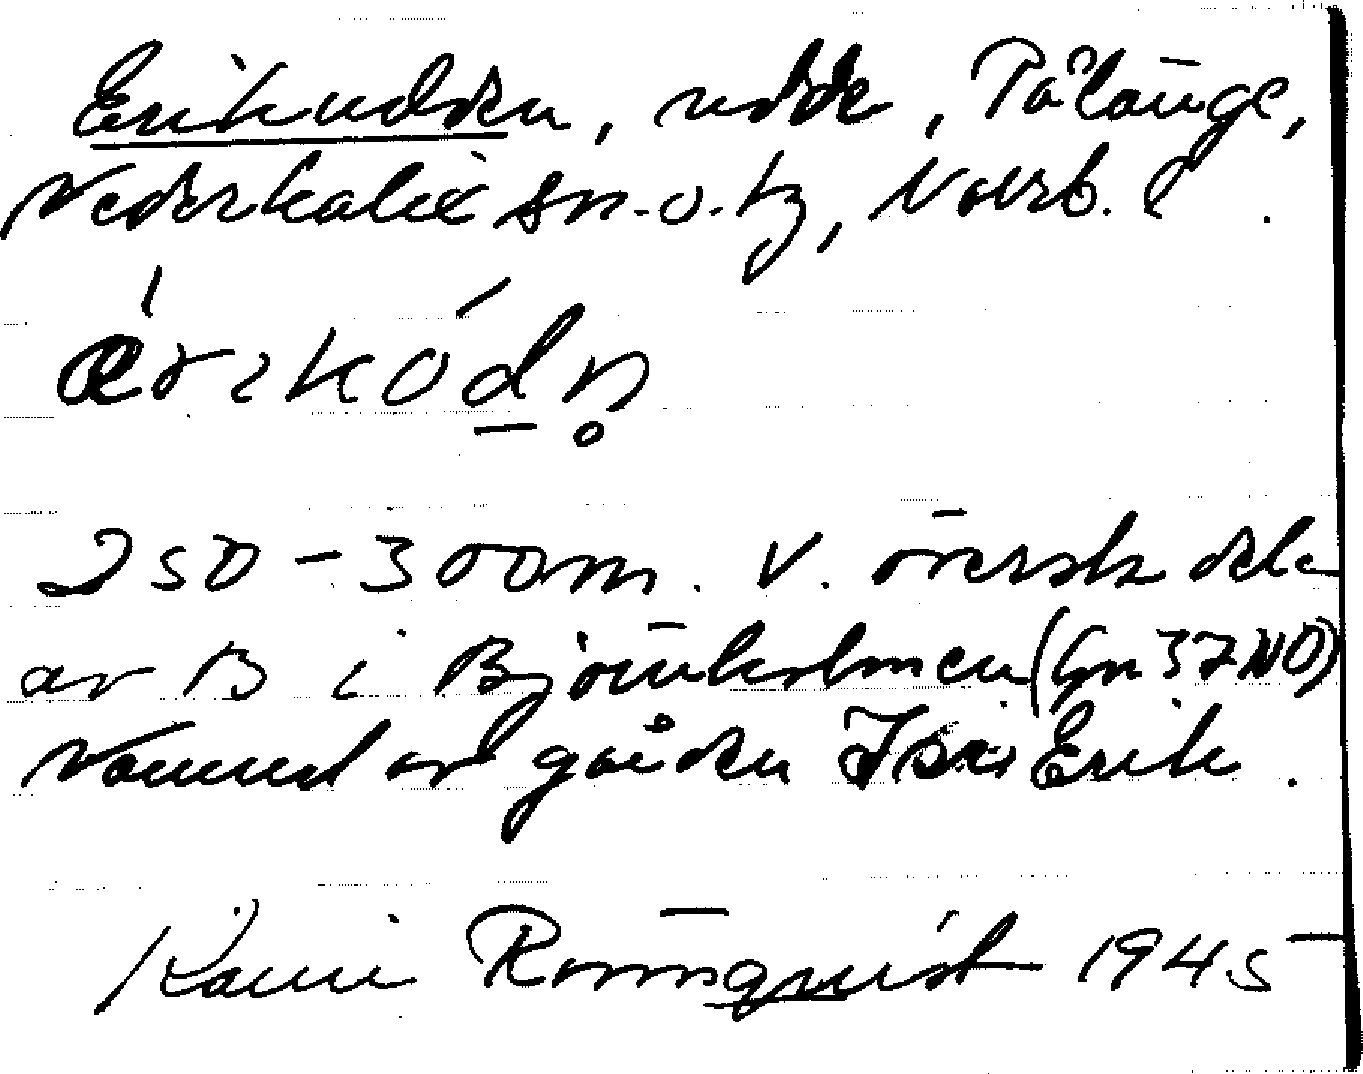 Erikudden, udde, Pålänge,
Nederkalix sn. o. tg, Norrb. l.
250-300 m. V. översta dele
av B i Björnholmen (Gn 37 NO)
Namnet av gården Erik.
Karin Rönnquist 1945